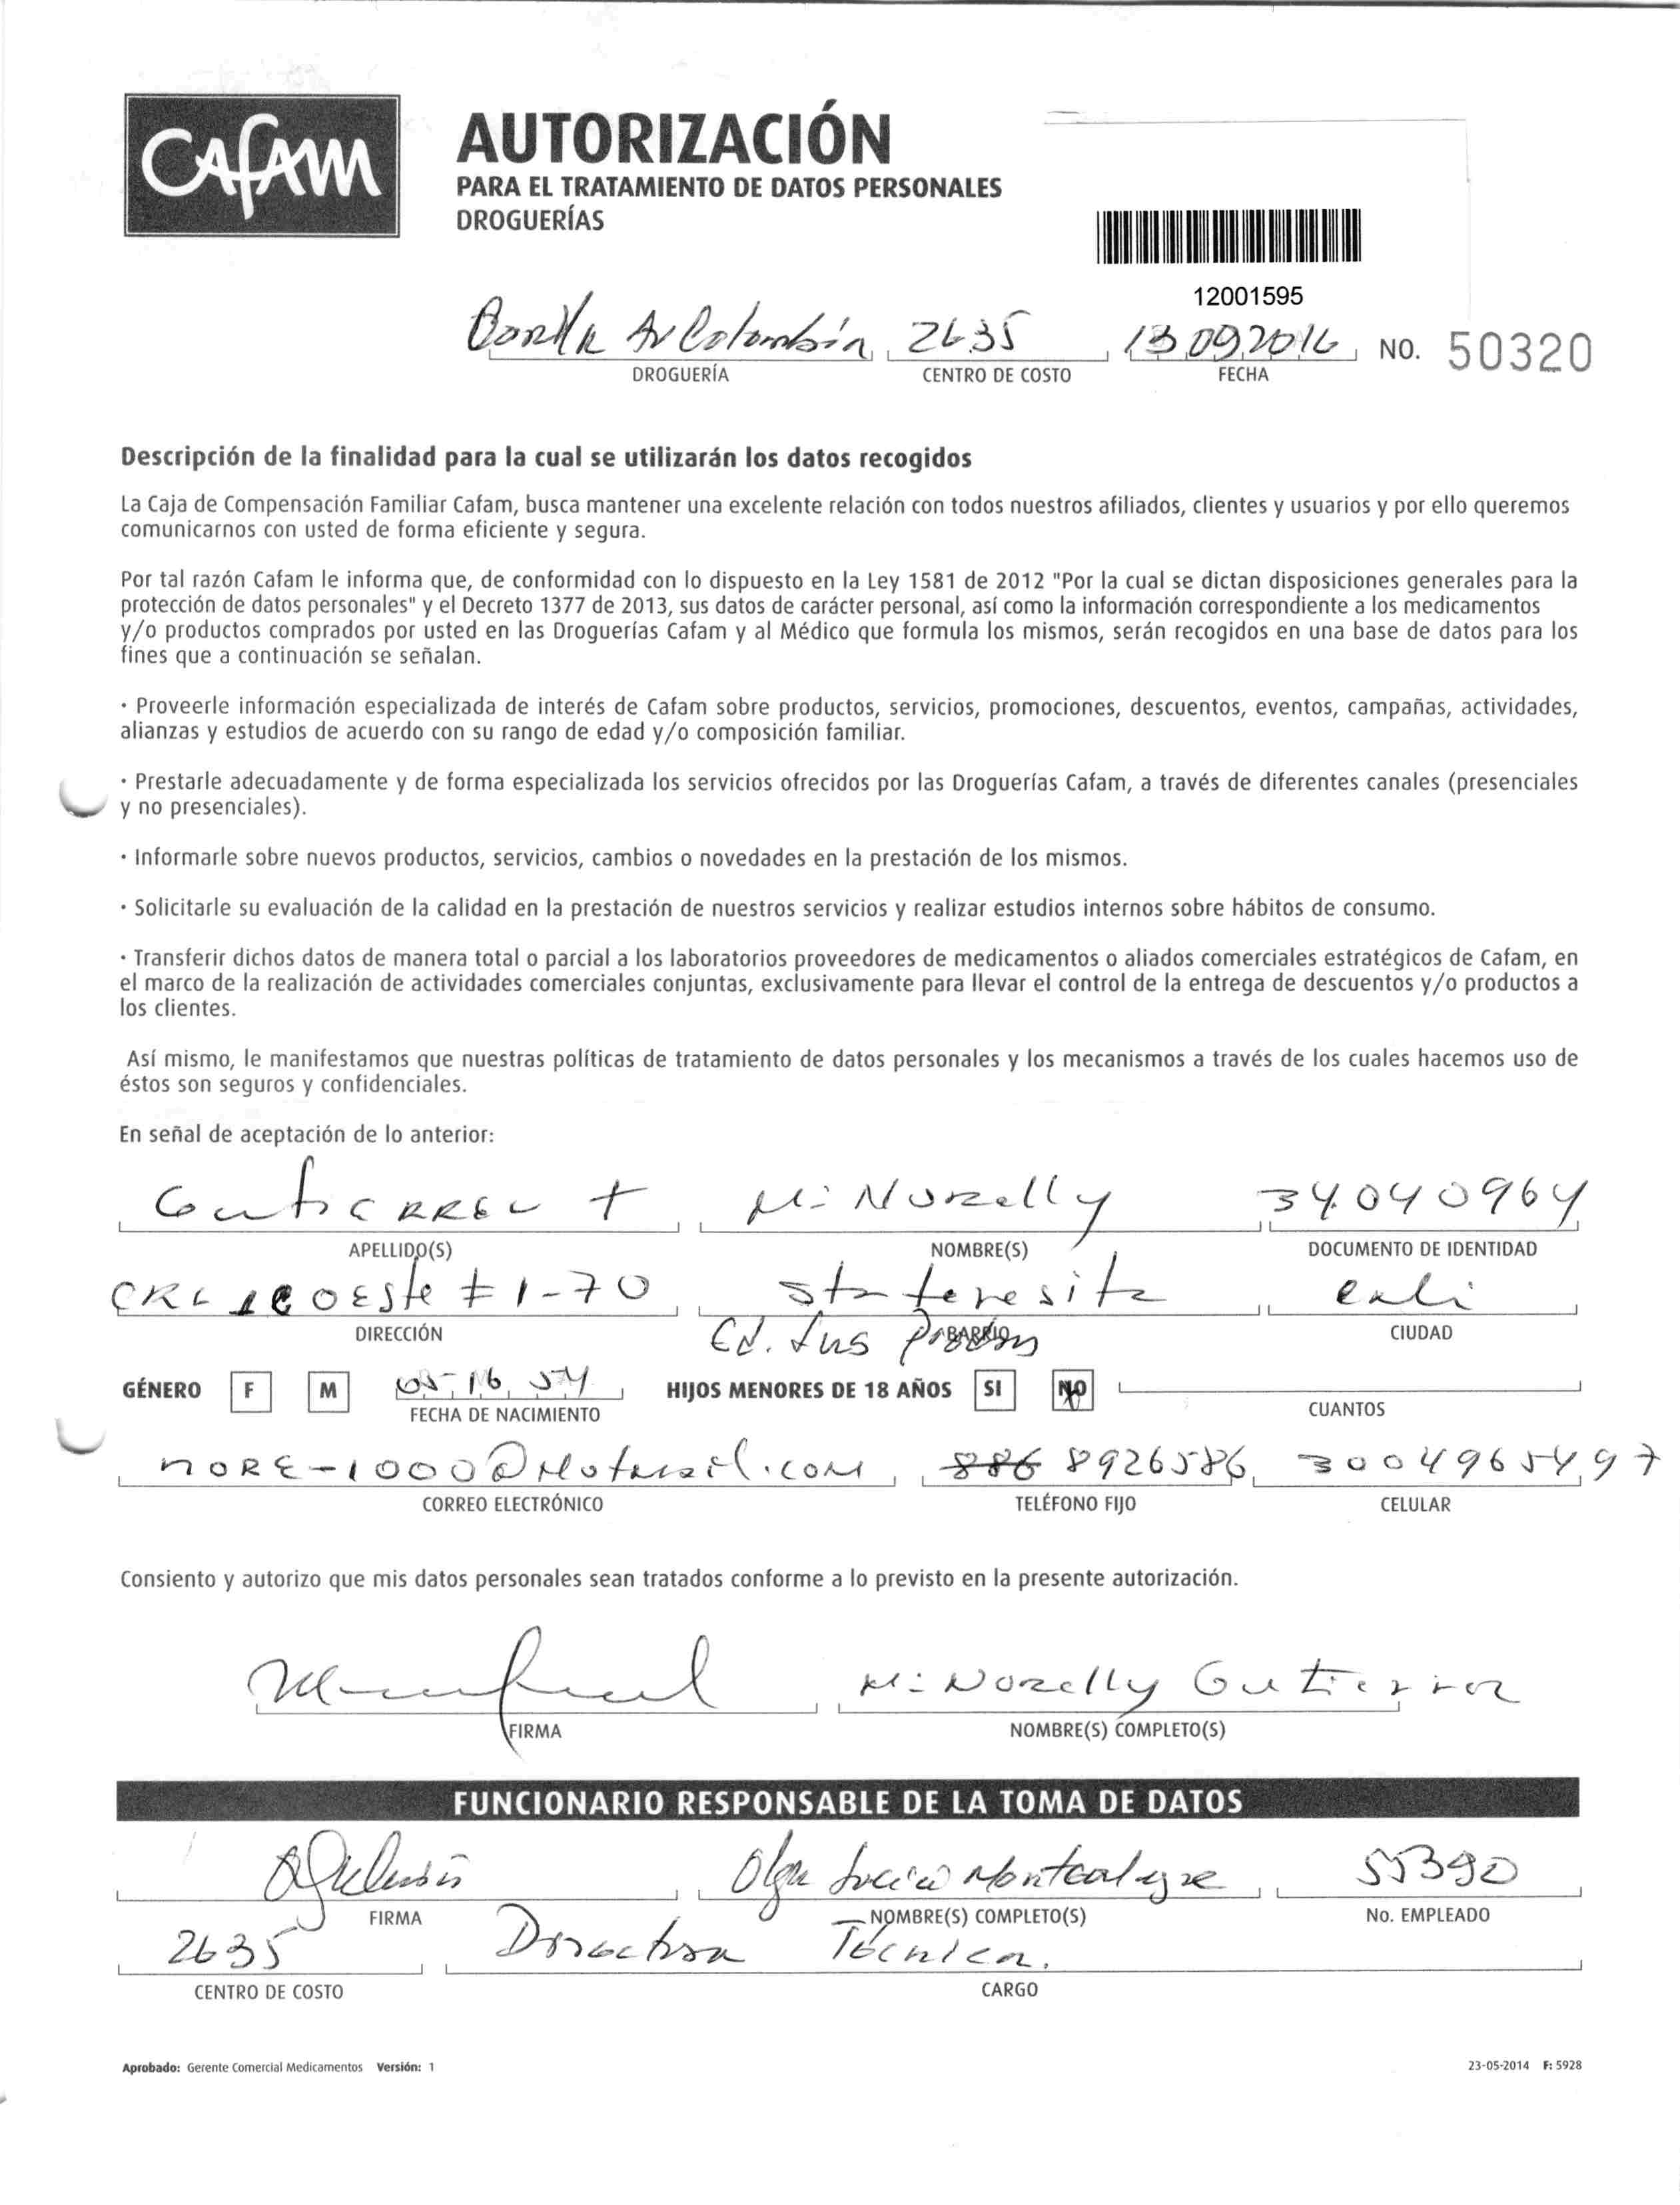 CAFAM
AUTORIZACIÓN
PARA EL TRATAMIENTO DE DATOS PERSONALES
DROGUERÍAS
12001595
Av Colombia 2635 13 09 2016 NO. 50320
DROGUERÍA CENTRO DE COSTO FECHA
Descripción de la finalidad para la cual se utilizarán los datos recogidos
La Caja de Compensación Familiar Cafam, busca mantener una excelente relación con todos nuestros afiliados, clientes y usuarios y por ello queremos
comunicarnos con usted de forma eficiente y segura.
Por tal razón Cafam le informa que, de conformidad con lo dispuesto en la Ley 1581 de 2012 "Por la cual se dictan disposiciones generales para la
protección de datos personales" y el Decreto 1377 de 2013, sus datos de carácter personal, así como la información correspondiente a los medicamentos
y/o productos comprados por usted en las Droguerías Cafam y al Médico que formula los mismos, serán recogidos en una base de datos para los
fines que a continuación se señalan.
· Proveerle información especializada de interés de Cafam sobre productos, servicios, promociones, descuentos, eventos, campañas, actividades,
alianzas y estudios de acuerdo con su rango de edad y/o composición familiar.
· Prestarle adecuadamente y de forma especializada los servicios ofrecidos por las Droguerías Cafam, a través de diferentes canales (presenciales
y no presenciales).
· Informarle sobre nuevos productos, servicios, cambios o novedades en la prestación de los mismos.
· Solicitarle su evaluación de la calidad en la prestación de nuestros servicios y realizar estudios internos sobre hábitos de consumo.
· Transferir dichos datos de manera total o parcial a los laboratorios proveedores de medicamentos o aliados comerciales estratégicos de Cafam, en
el marco de la realización de actividades comerciales conjuntas, exclusivamente para llevar el control de la entrega de descuentos y/o productos a
los clientes.
Así mismo, le manifestamos que nuestras políticas de tratamiento de datos personales y los mecanismos a través de los cuales hacemos uso de
éstos son seguros y confidenciales.
En señal de aceptación de lo anterior:
Gutierrez T M: Norelly 34.040964
APELLIDO(S) NOMBRE(S) DOCUMENTO DE IDENTIDAD
oeste # 1-70 Sta teresita Cali
DIRECCIÓN BARRIO CIUDAD
Ed. Lus
GÉNERO F M 05 16 54 HIJOS MENORES DE 18 AÑOS SI NO
FECHA DE NACIMIENTO CUANTOS
NORE-1000@Hotmail.com 886 8926586 3004965497
CORREO ELECTRÓNICO TELÉFONO FIJO CELULAR
Consiento y autorizo que mis datos personales sean tratados conforme a lo previsto en la presente autorización.
M: Norelly Gutierrez
FIRMA NOMBRE(S) COMPLETO(S)
FUNCIONARIO RESPONSABLE DE LA TOMA DE DATOS
Olga Lucia Montealegre 55390
FIRMA NOMBRE(S) COMPLETO(S) No. EMPLEADO
2635 Directora Técnica.
CENTRO DE COSTO CARGO
Aprobado: Gerente Comercial Medicamentos Versión: 1 23-05-2014 F: 5928